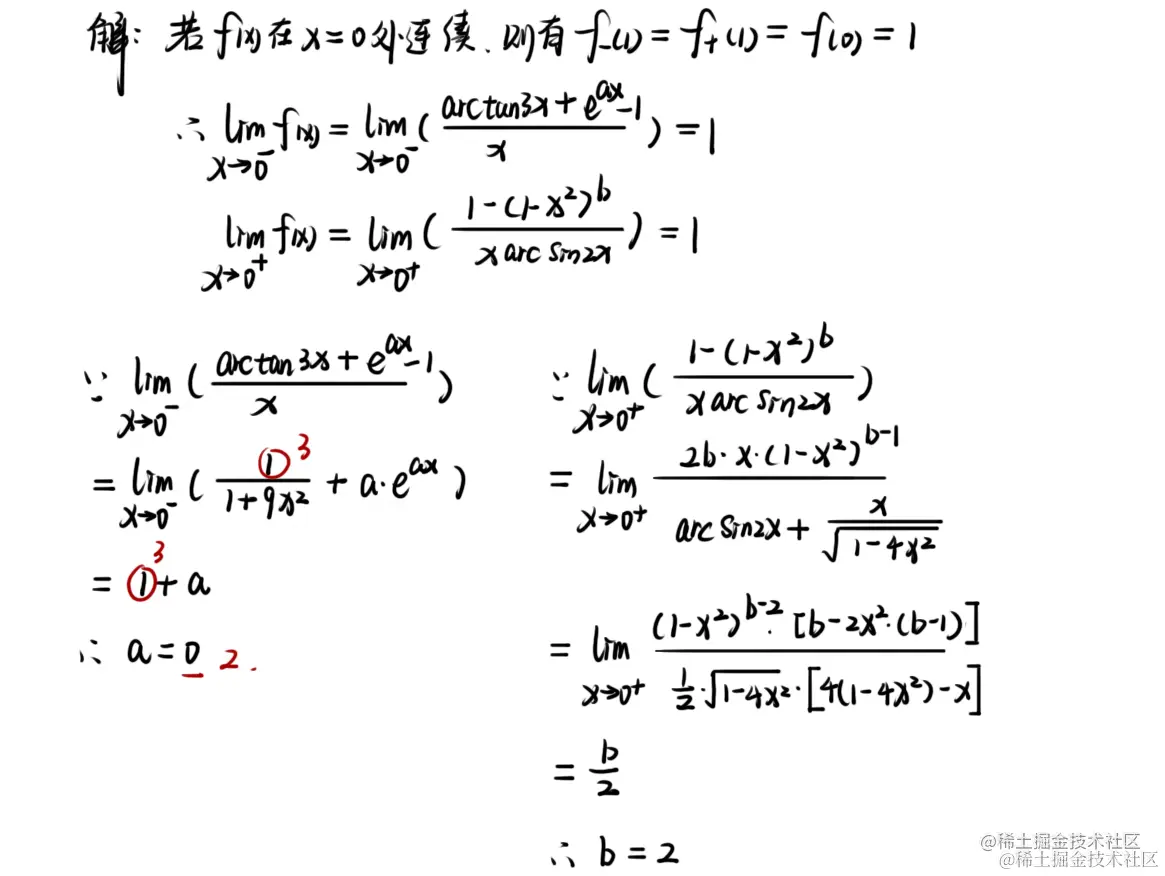 解: 若 f(x) 在 x=0 处连续, 则有 f₋(1) = f₊(1) = f(0) = 1
∴ lim_{x→0⁻} f(x) = lim_{x→0⁻} ( (arctan3x + e^{ax} - 1) / x ) = 1
lim_{x→0⁺} f(x) = lim_{x→0⁺} ( (1 - (1-x²)^b) / (x arcsin2x) ) = 1
∵ lim_{x→0⁻} ( (arctan3x + e^{ax} - 1) / x )
= lim_{x→0⁻} ( 1 / (1+9x²) + a·e^{ax} )
3
= 1 + a
3
∴ a = 0
2.
∵ lim_{x→0⁺} ( (1 - (1-x²)^b) / (x arcsin2x) )
= lim_{x→0⁺} (2b·x·(1-x²)^{b-1}) / (arcsin2x + x/√(1-4x²))
= lim_{x→0⁺} ((1-x²)^{b-2}·[b-2x²·(b-1)]) / (1/2·√(1-4x²)·[4(1-4x²)-x])
= b/2
∴ b = 2
@稀土掘金技术社区
@稀土掘金技术社区